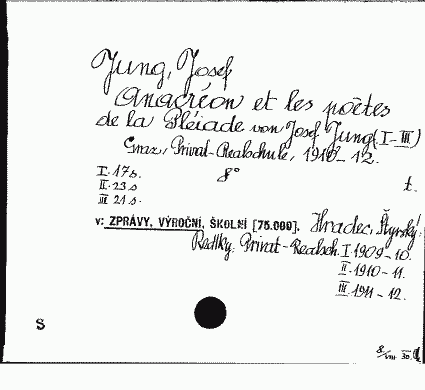 Jung, Josef
Anacréon et les poètes
de la Pléiade von Josef Jung (I-III)
Graz, Privat-Realschule, 1910-12.
I. 17 s. 8° t.
II. 23 s
III 21 s.
v: ZPRÁVY, VÝROČNÍ, ŠKOLNÍ [75.000]. Hradec, Štyrský:
Privat-Realsch. I. 1909-10.
II 1910-11.
III. 1911-12.
S
8/VIII 30.